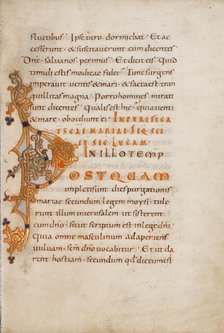 fluctibus. Ipse vero dormiebat. Et ac
cesserunt. & suscitaverunt eum dicentes
Dne. salva nos perimus. Et dicit eis
Quid timidi estis modicae fidei. Tunc surgens
imperavit ventis & mari. & facta est tran
quillitas magna. Porro homines mirati
sunt dicentes. Qualis est hic. quia venti
& mare. oboediunt ei. IN PURIFICA
T SCAE MARIAE SEQ SCI
EV SEC LUCAM
IN ILLO TEMP
POSTQUAM
impleti sunt dies purgationis
mariae secundum legem moysi. tule
runt illum in hierusalem ut sisterent
eum dno. sicut scriptum est in lege dni
Quia omne masculinum adaperiens
vulvam. scm dno vocabitur. Et ut da
rent hostiam. secundum qd dictum est